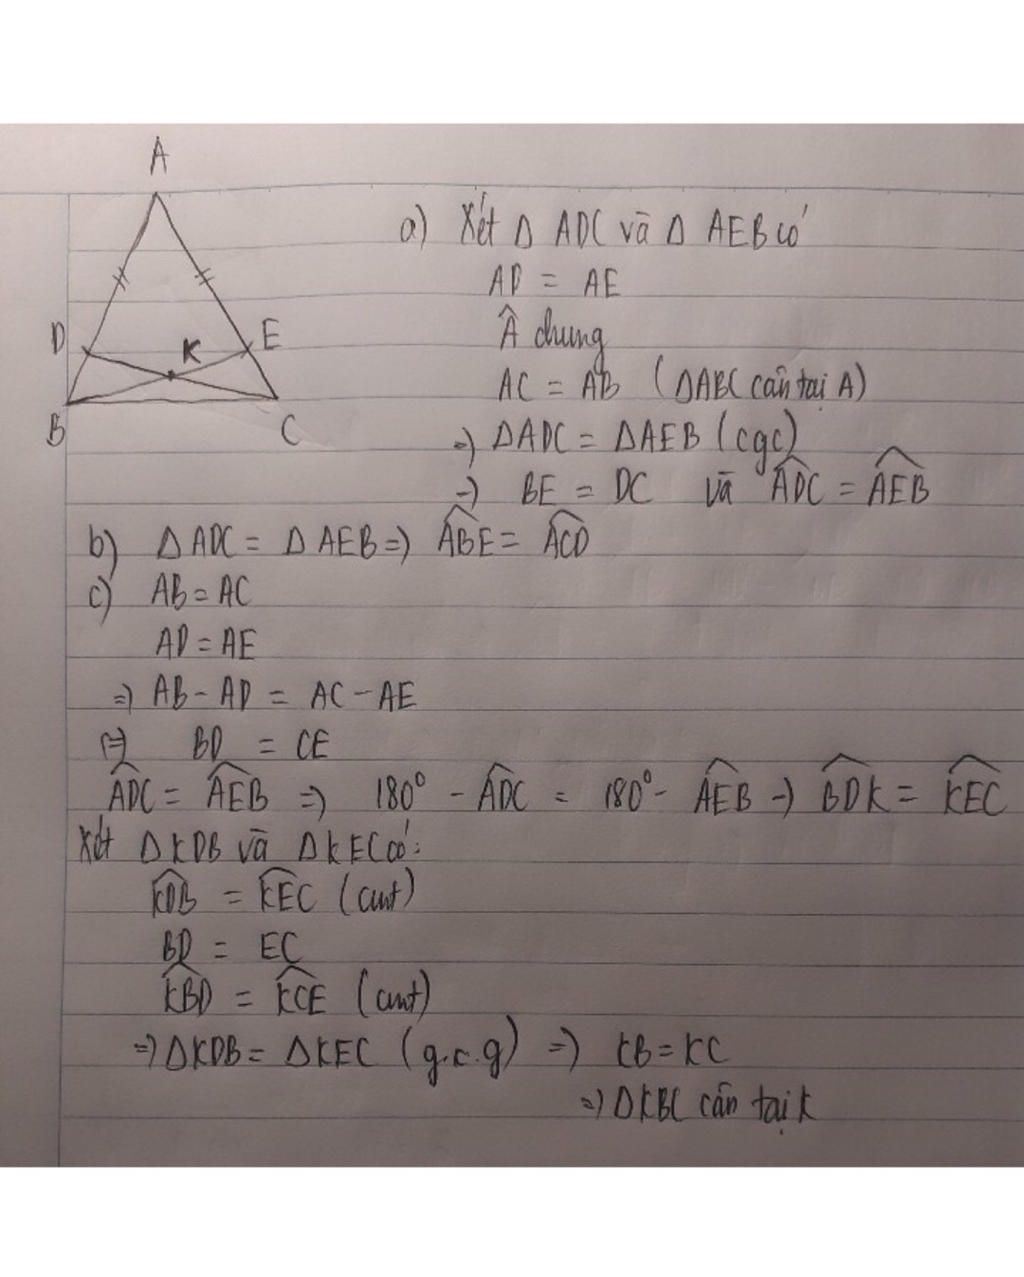 A
D
E
K
B
C
a) Xét Δ ADC và Δ AEB có
AD = AE
Â chung
AC = AB (ΔABC cân tại A)
=) ΔADC = ΔAEB (cgc)
=) BE = DC và \widehat{ADC} = \widehat{AEB}
b) Δ ADC = Δ AEB =) \widehat{ABE} = \widehat{ACD}
c) AB = AC
AD = AE
=) AB - AD = AC - AE
(=) BD = CE
\widehat{ADC} = \widehat{AEB} =) 180° - \widehat{ADC} = 180° - \widehat{AEB} =) \widehat{BDK} = \widehat{KEC}
Xét ΔKDB và ΔKEC có:
\widehat{KDB} = \widehat{KEC} (cmt)
BD = EC
\widehat{KBD} = \widehat{KCE} (cmt)
=) ΔKDB = ΔKEC (g.c.g) =) KB = KC
=) ΔKBC cân tại K